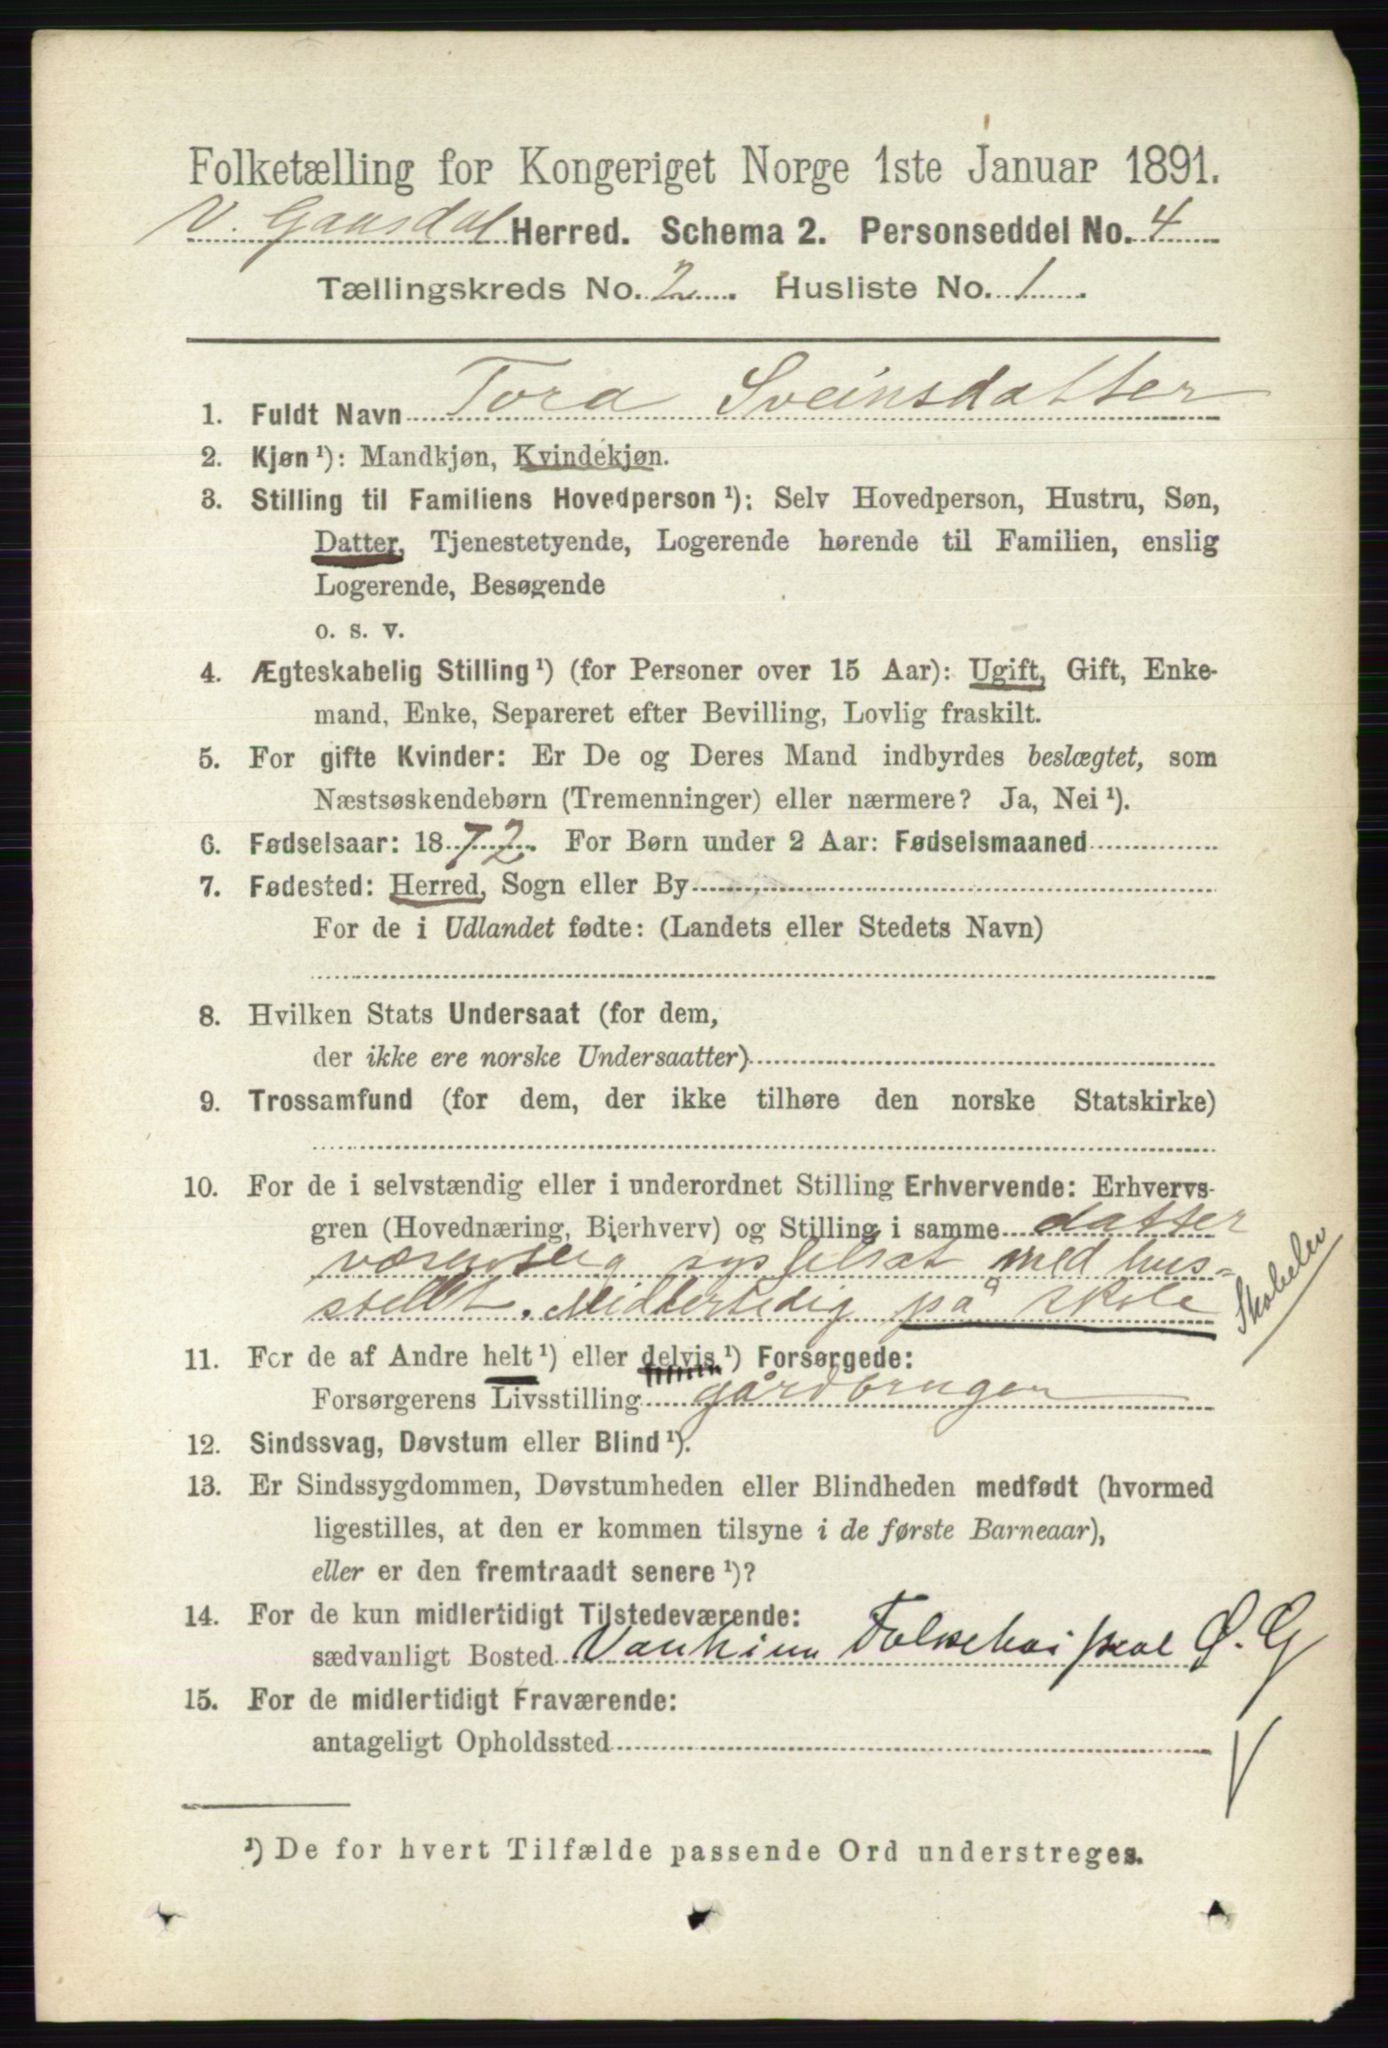 Folketælling for Kongeriget Norge 1ste Januar 1891.
V. Gausdal Herred. Schema 2. Personseddel No. 4
Tællingskreds No. 2. Husliste No. 1
1. Fuldt Navn Tora Sveinsdatter
2. Kjøn ¹): Mandkjøn, Kvindekjøn.
3. Stilling til Familiens Hovedperson ¹): Selv Hovedperson, Hustru, Søn,
Datter, Tjenestetyende, Logerende hørende til Familien, enslig
Logerende, Besøgende
o. s. v.
4. Ægteskabelig Stilling ¹) (for Personer over 15 Aar): Ugift, Gift, Enke-
mand, Enke, Separeret efter Bevilling, Lovlig fraskilt.
5. For gifte Kvinder: Er De og Deres Mand indbyrdes beslægtet, som
Næstsøskendebørn (Tremenninger) eller nærmere? Ja, Nei ¹).
6. Fødselsaar: 1872. For Børn under 2 Aar: Fødselsmaaned
7. Fødested: Herred, Sogn eller By
For de i Udlandet fødte: (Landets eller Stedets Navn)
8. Hvilken Stats Undersaat (for dem,
der ikke ere norske Undersaatter)
9. Trossamfund (for dem, der ikke tilhøre den norske Statskirke)
10. For de i selvstændig eller i underordnet Stilling Erhvervende: Erhvervs-
gren (Hovednæring, Bierhverv) og Stilling i samme datter
sysselsat med hus-
stellet. Midlertidig på skole
Skoleelev
11. For de af Andre helt ¹) eller delvis ¹) Forsørgede:
Forsørgerens Livsstilling gårdbruger
12. Sindssvag, Døvstum eller Blind ¹).
13. Er Sindssygdommen, Døvstumheden eller Blindheden medfødt (hvormed
ligestilles, at den er kommen tilsyne i de første Barneaar),
eller er den fremtraadt senere ¹)?
14. For de kun midlertidigt Tilstedeværende:
sædvanligt Bosted Folkehøiskol Ø. G
15. For de midlertidigt Fraværende:
antageligt Opholdssted
¹) De for hvert Tilfælde passende Ord understreges.